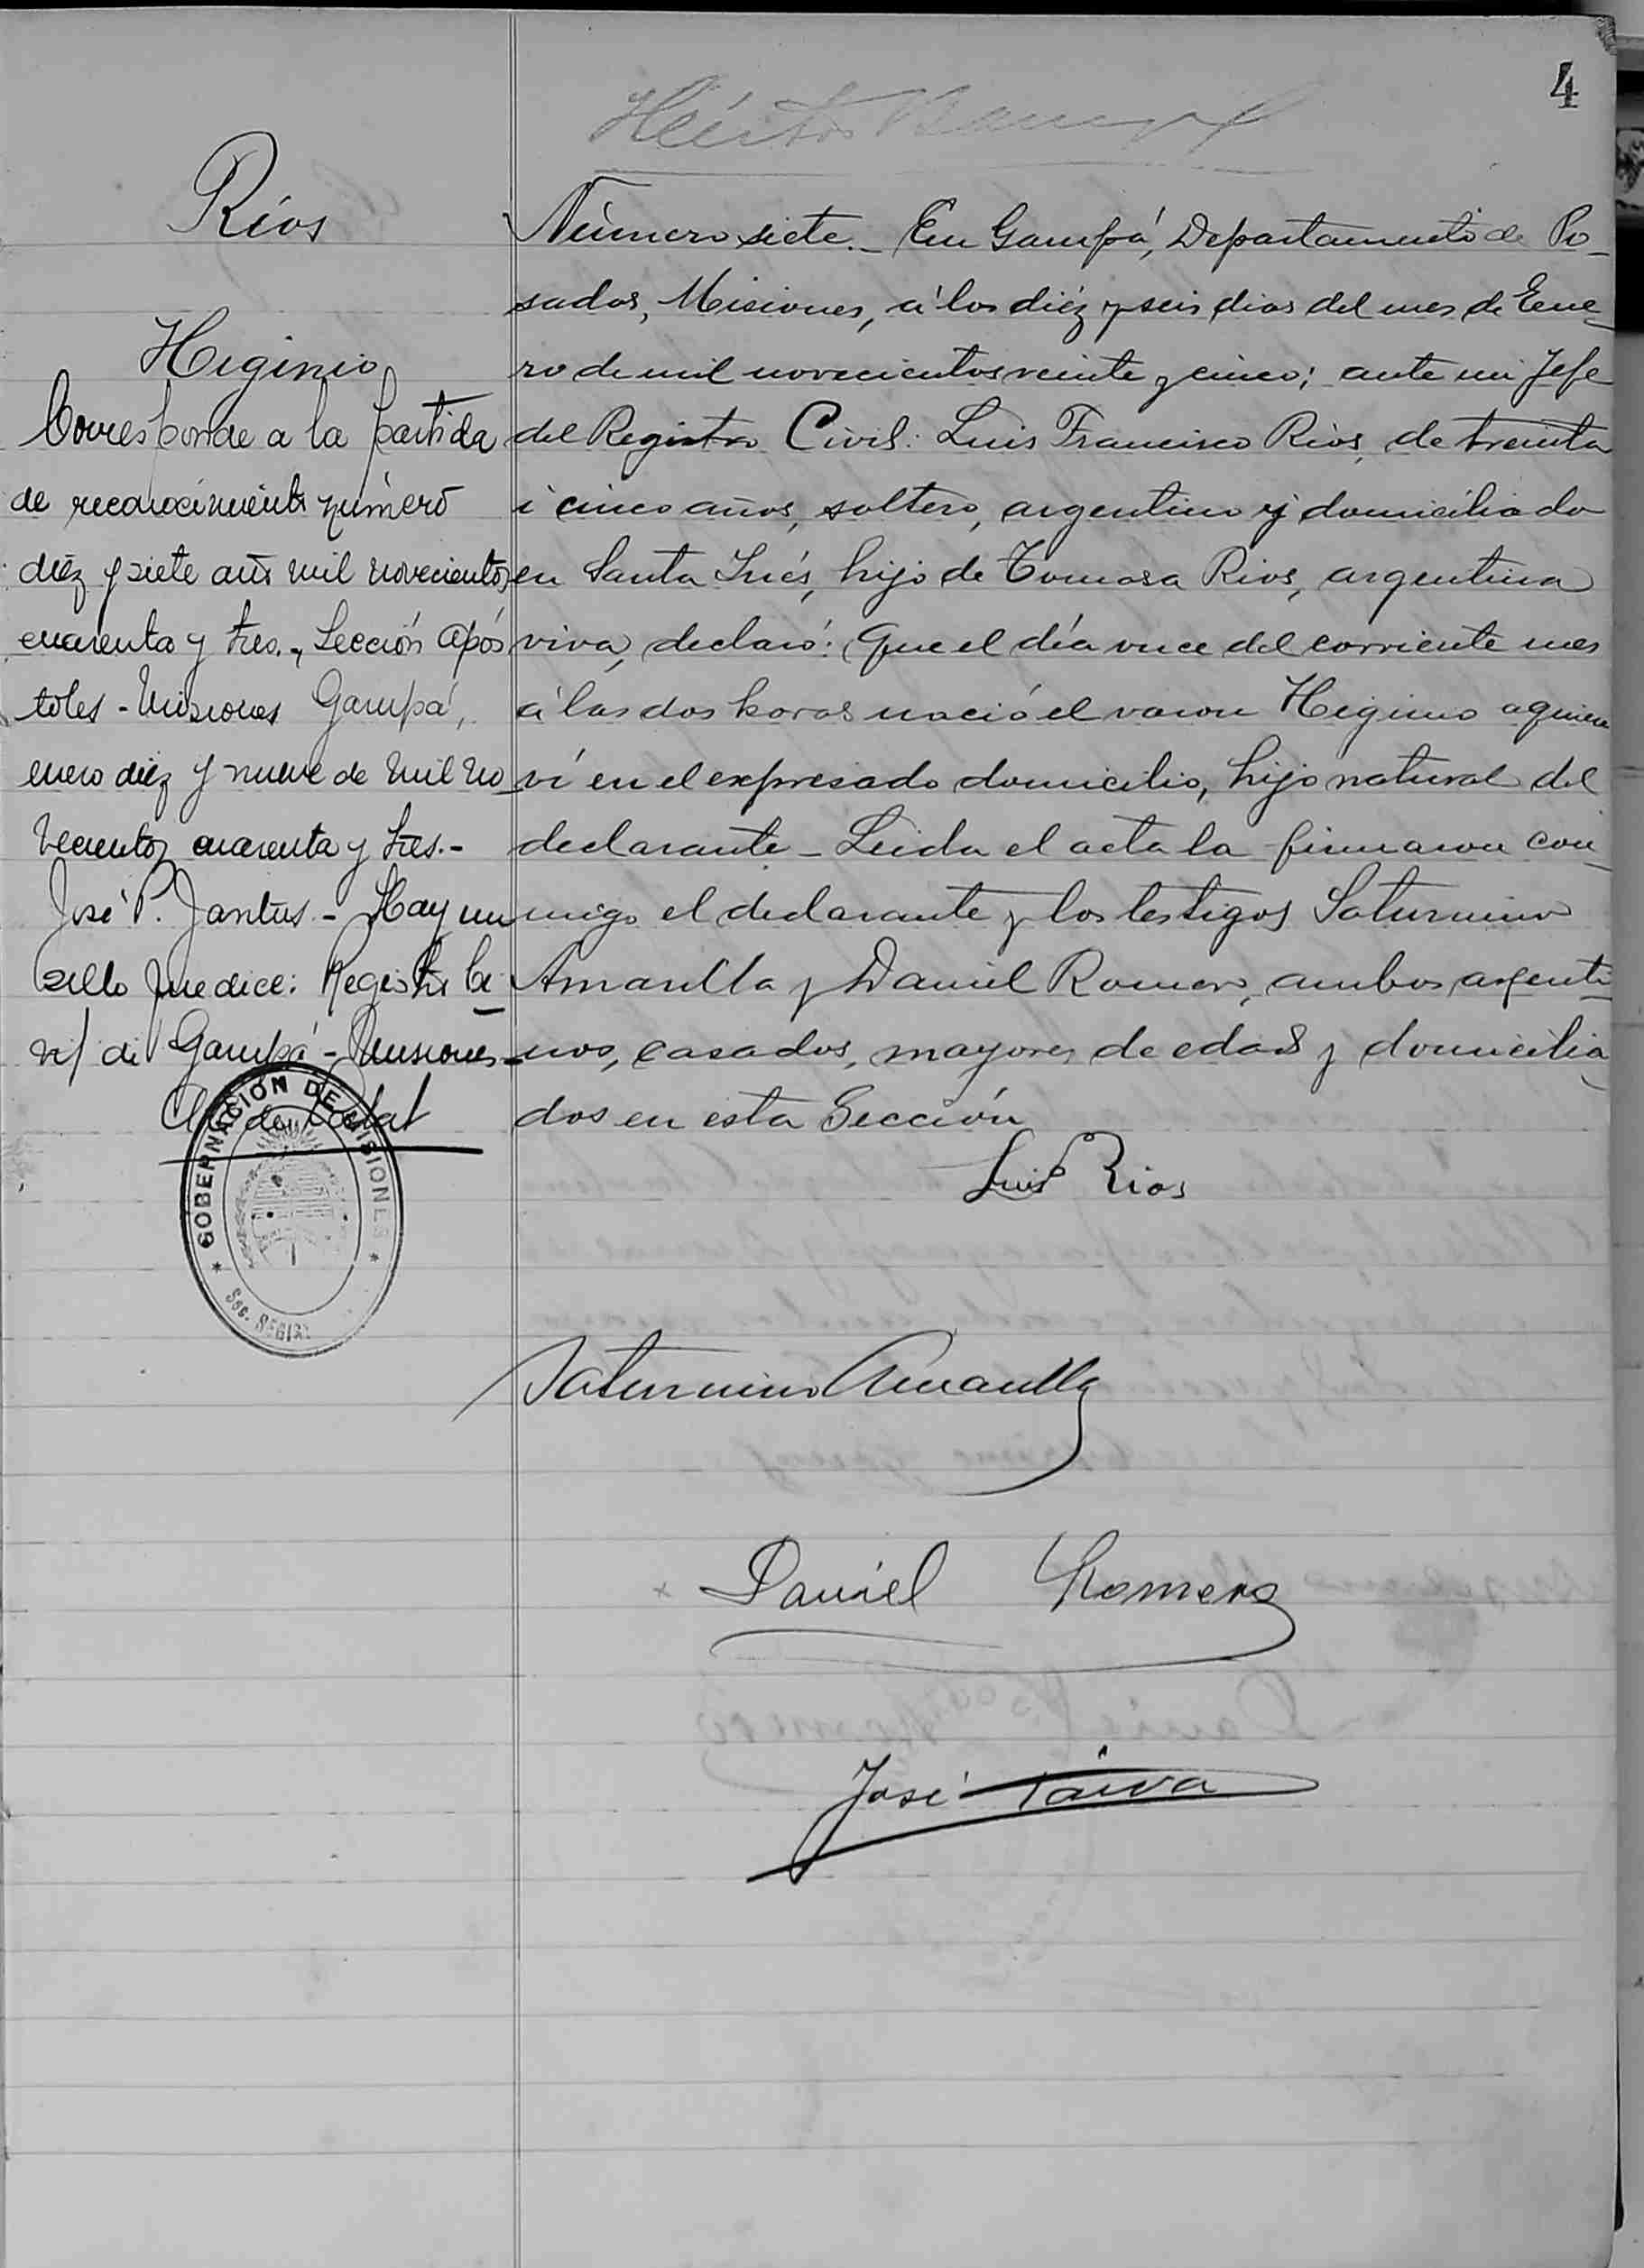 4
Ríos
Higinio
Corresponde a la partida
de reconocimiento número
diéz y siete año mil novecientos
cuarenta y tres.- Sección Após
toles - Misiones Garupá,
enero diéz y nueve de mil no
vecientos cuarenta y tres.-
José P. Jantus - Hay un
sello que dice: Registro Ci
vil de Garupá - Misiones -
GOBERNACIÓN DE MISIONES
Sec.
Número siete._ En Garupá, Departamento de Po_
sadas, Misiones, á los diéz y seis dias del mes de Ene_
ro de mil novecientos veinte y cinco; ante mi Jefe
del Registro Civil: Luis Francisco Rios, de treinta
i cinco años, soltero, argentino y domiciliado
en Santa Inés, hijo de Tomasa Rios, argentina
viva, declaró: Que el día once del corriente mes
á las dos horas nació el varon Higinio a quien
ví en el expresado domicilio, hijo natural del
declarante _ Leida el acta la firmaron con_
migo el declarante y los testigos Saturnino
Amarilla y Daniel Romero, ambos argenti_
nos, casados, mayores de edad y domicilia_
dos en esta Sección
Luis Rios
Saturnino Amarilla
Daniel Romero
José Paiva